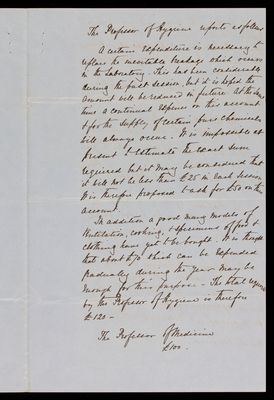 The Professor of Hygiene reports as follows
A certain expenditure is necessary to
replace the inevitable breakage which occurs
in the Laboratory. This has been considerable
during the past session, but it is hoped the
amount will be reduced in future. At the same
time a continual expense on this account
& for the supply of certain pure chemicals
will always occur. It is impossible at
present to estimate the exact sum
required but it may be considered that
it will not be less than £25 in each session
It is therefore proposed to ask for £50 on this
account.
In addition a good many models of
Ventilation, cooking, & specimens of food &
clothing have yet to be bought. It is thought
that about £70 which can be expended
gradually during the year may be
enough for this purpose - The total required
by the Professor of Hygiene is therefore
£120 -
The Professor of Medicine
£100 -